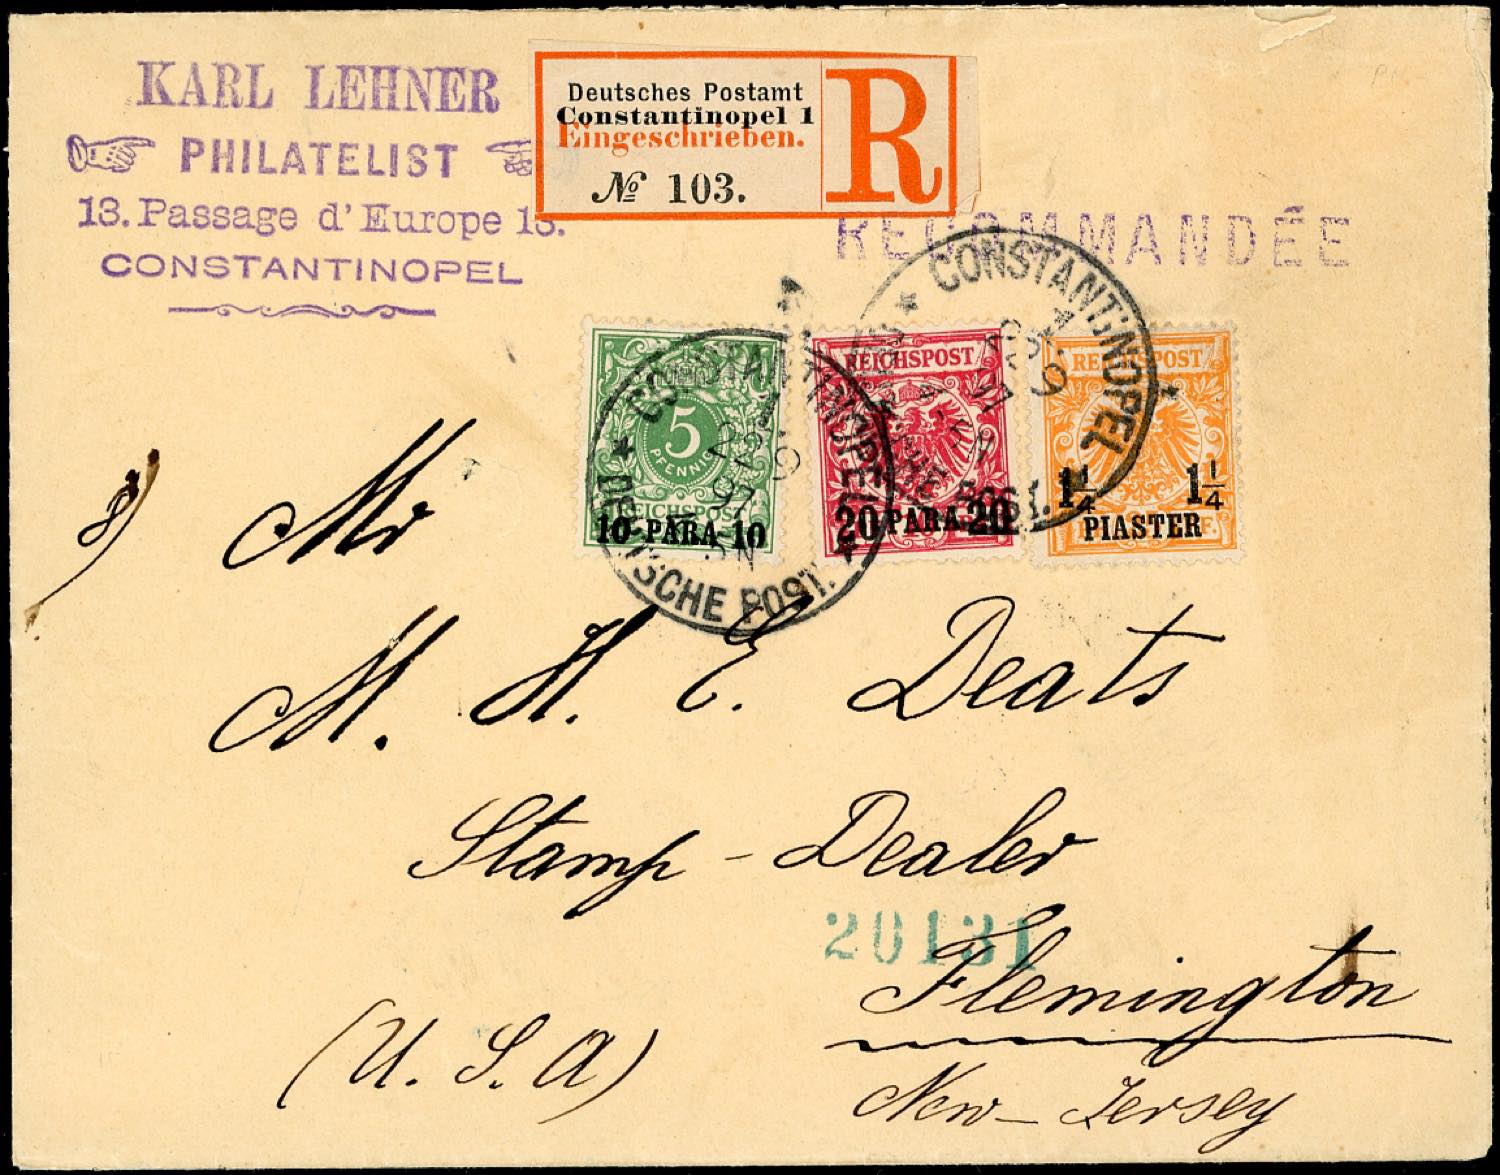 KARL LEHNER
PHILATELIST
13. Passage d'Europe 13.
CONSTANTINOPEL
Deutsches Postamt
Constantinopel 1
Eingeschrieben.
№ 103.
R
RECOMMANDÉE
5
PFENNIG
REICHSPOST
10 PARA 10
REICHSPOST
20 PARA 20
REICHSPOST
1 1/4 1 1/4
PIASTER
F.
CONSTANTINOPEL 1
22 9
97
DEUTSCHE POST.
CONSTANTINOPEL 1
DEUTSCHE POST.
8)
Mr
M. H. E. Deats
Stamp - Dealer
20131
Flemington
(U. S. A)
New-Jersey